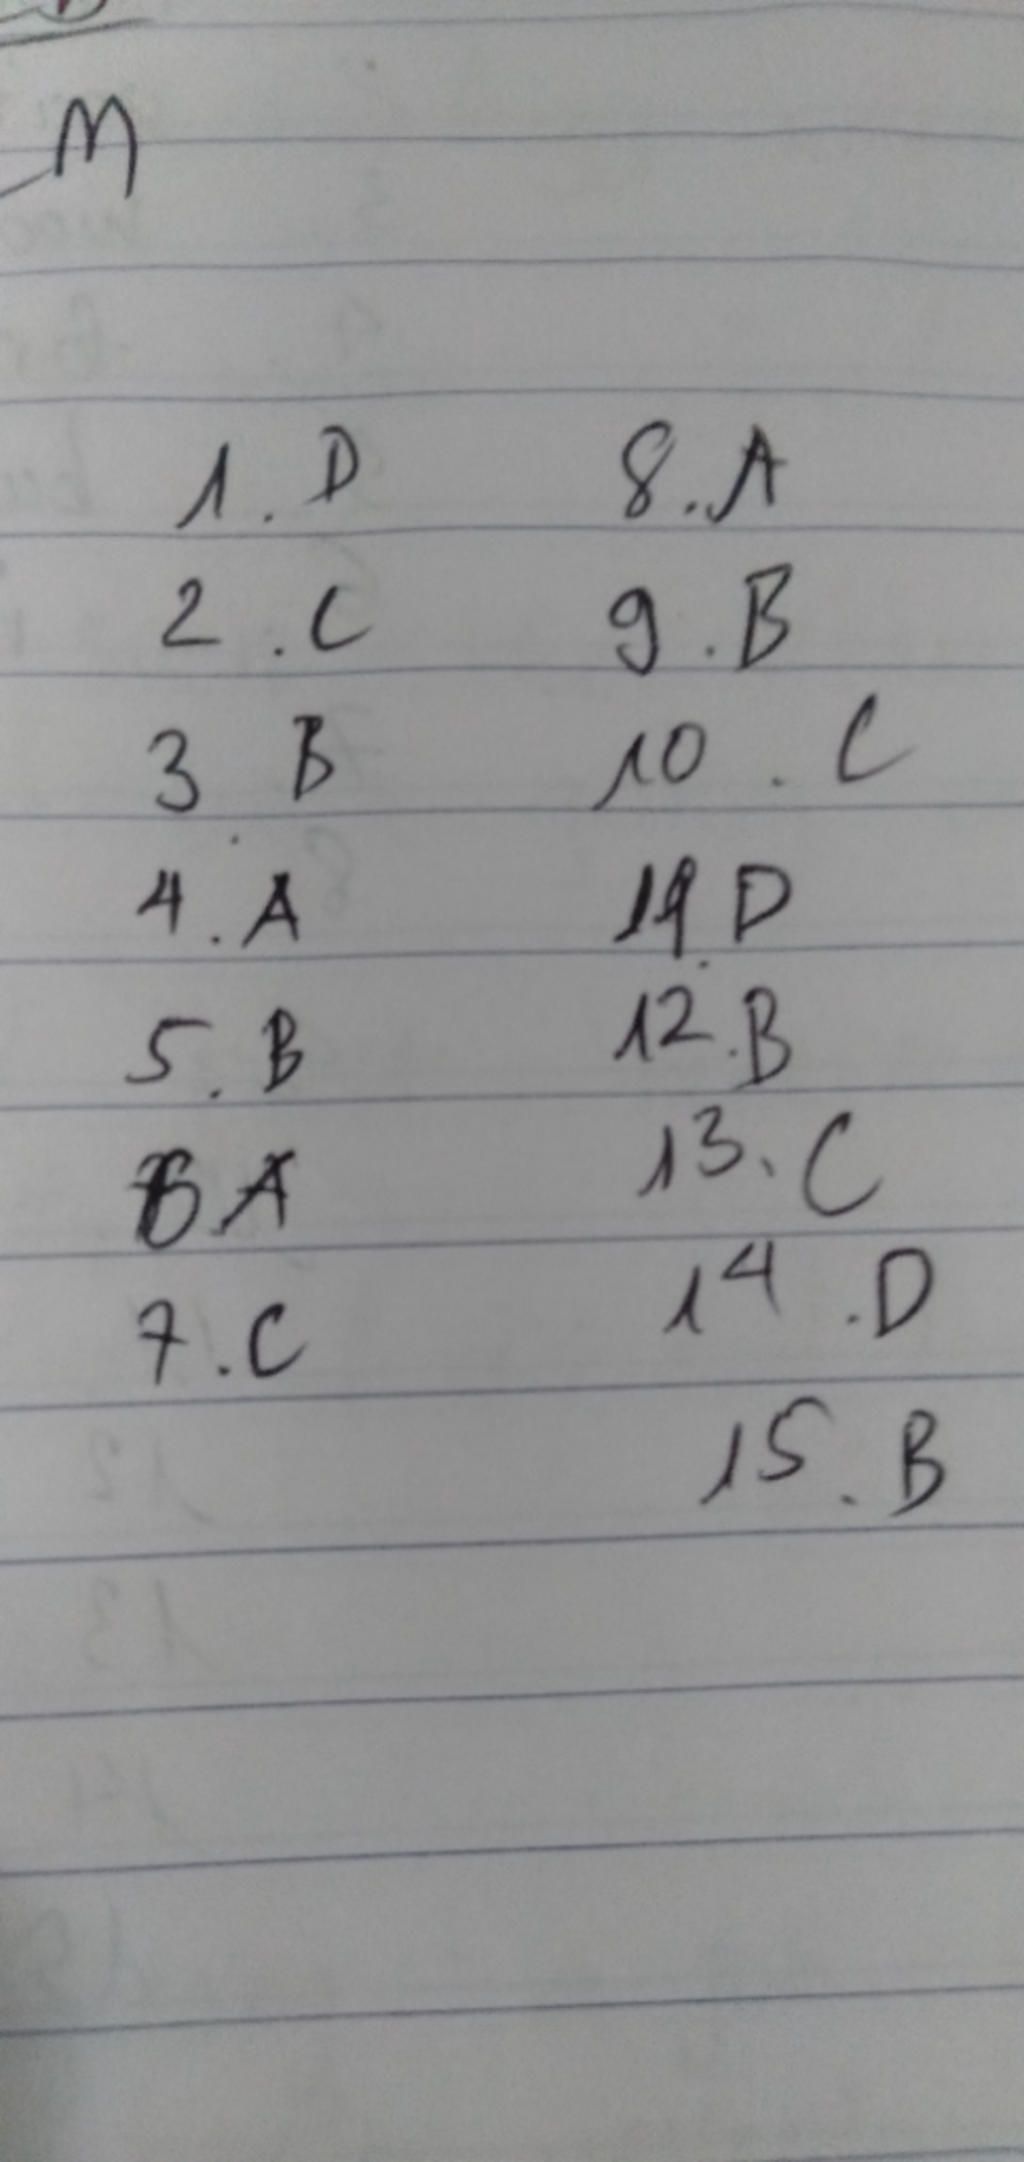 M
1. D
2. C
3 B
4. A
5. B
6 A
7. C
8. A
9. B
10. C
11. D
12. B
13. C
14. D
15. B